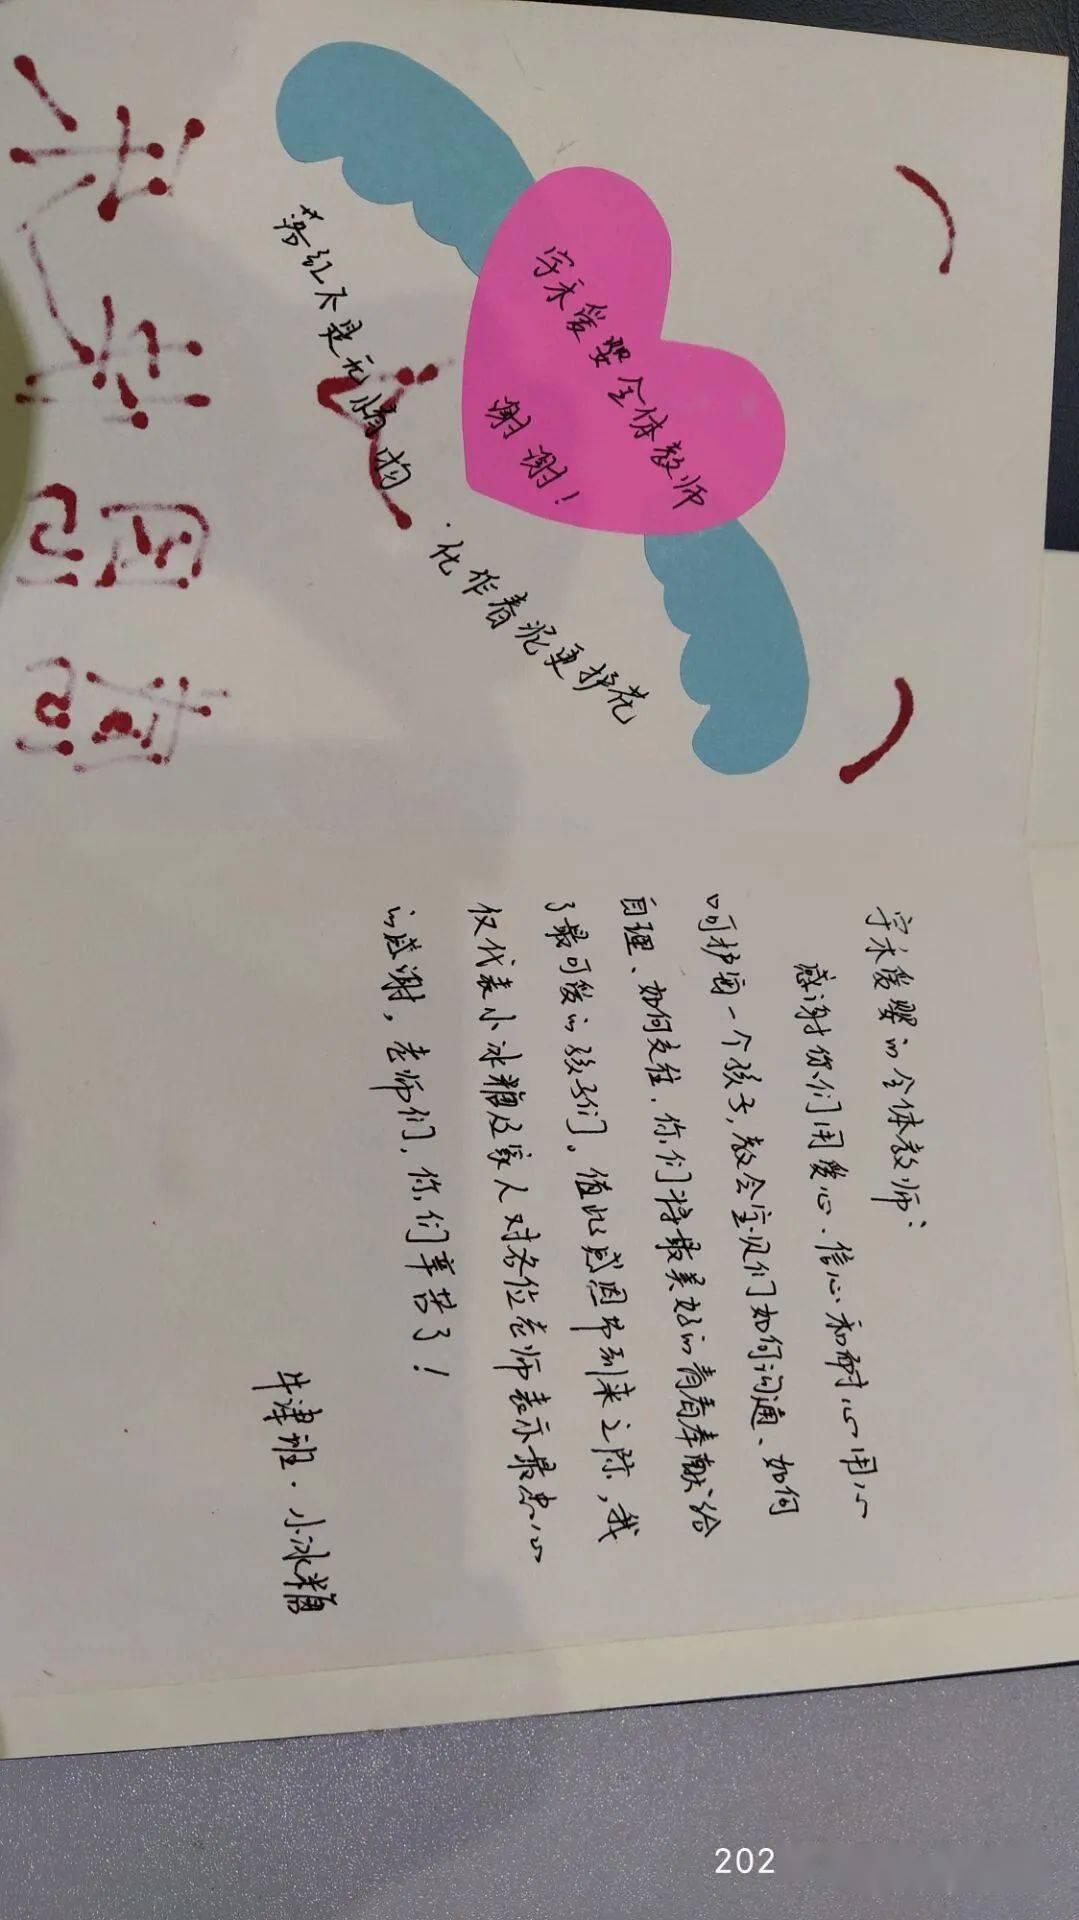 宇禾爱婴全体教师
谢谢！
落红不是无情物.
化作春泥更护花
宇禾爱婴的全体教师：
感谢你们用爱心.信心和耐心用心
呵护每一个孩子,教会宝贝们如何沟通、如何
自理、如何交往.你们将最美好的青春奉献给
了最可爱的孩子们。值此感恩节到来之际,我
仅代表小冰糖及家人对各位老师表示最忠心
的感谢,老师们,你们辛苦了！
牛津班.小冰糖
202